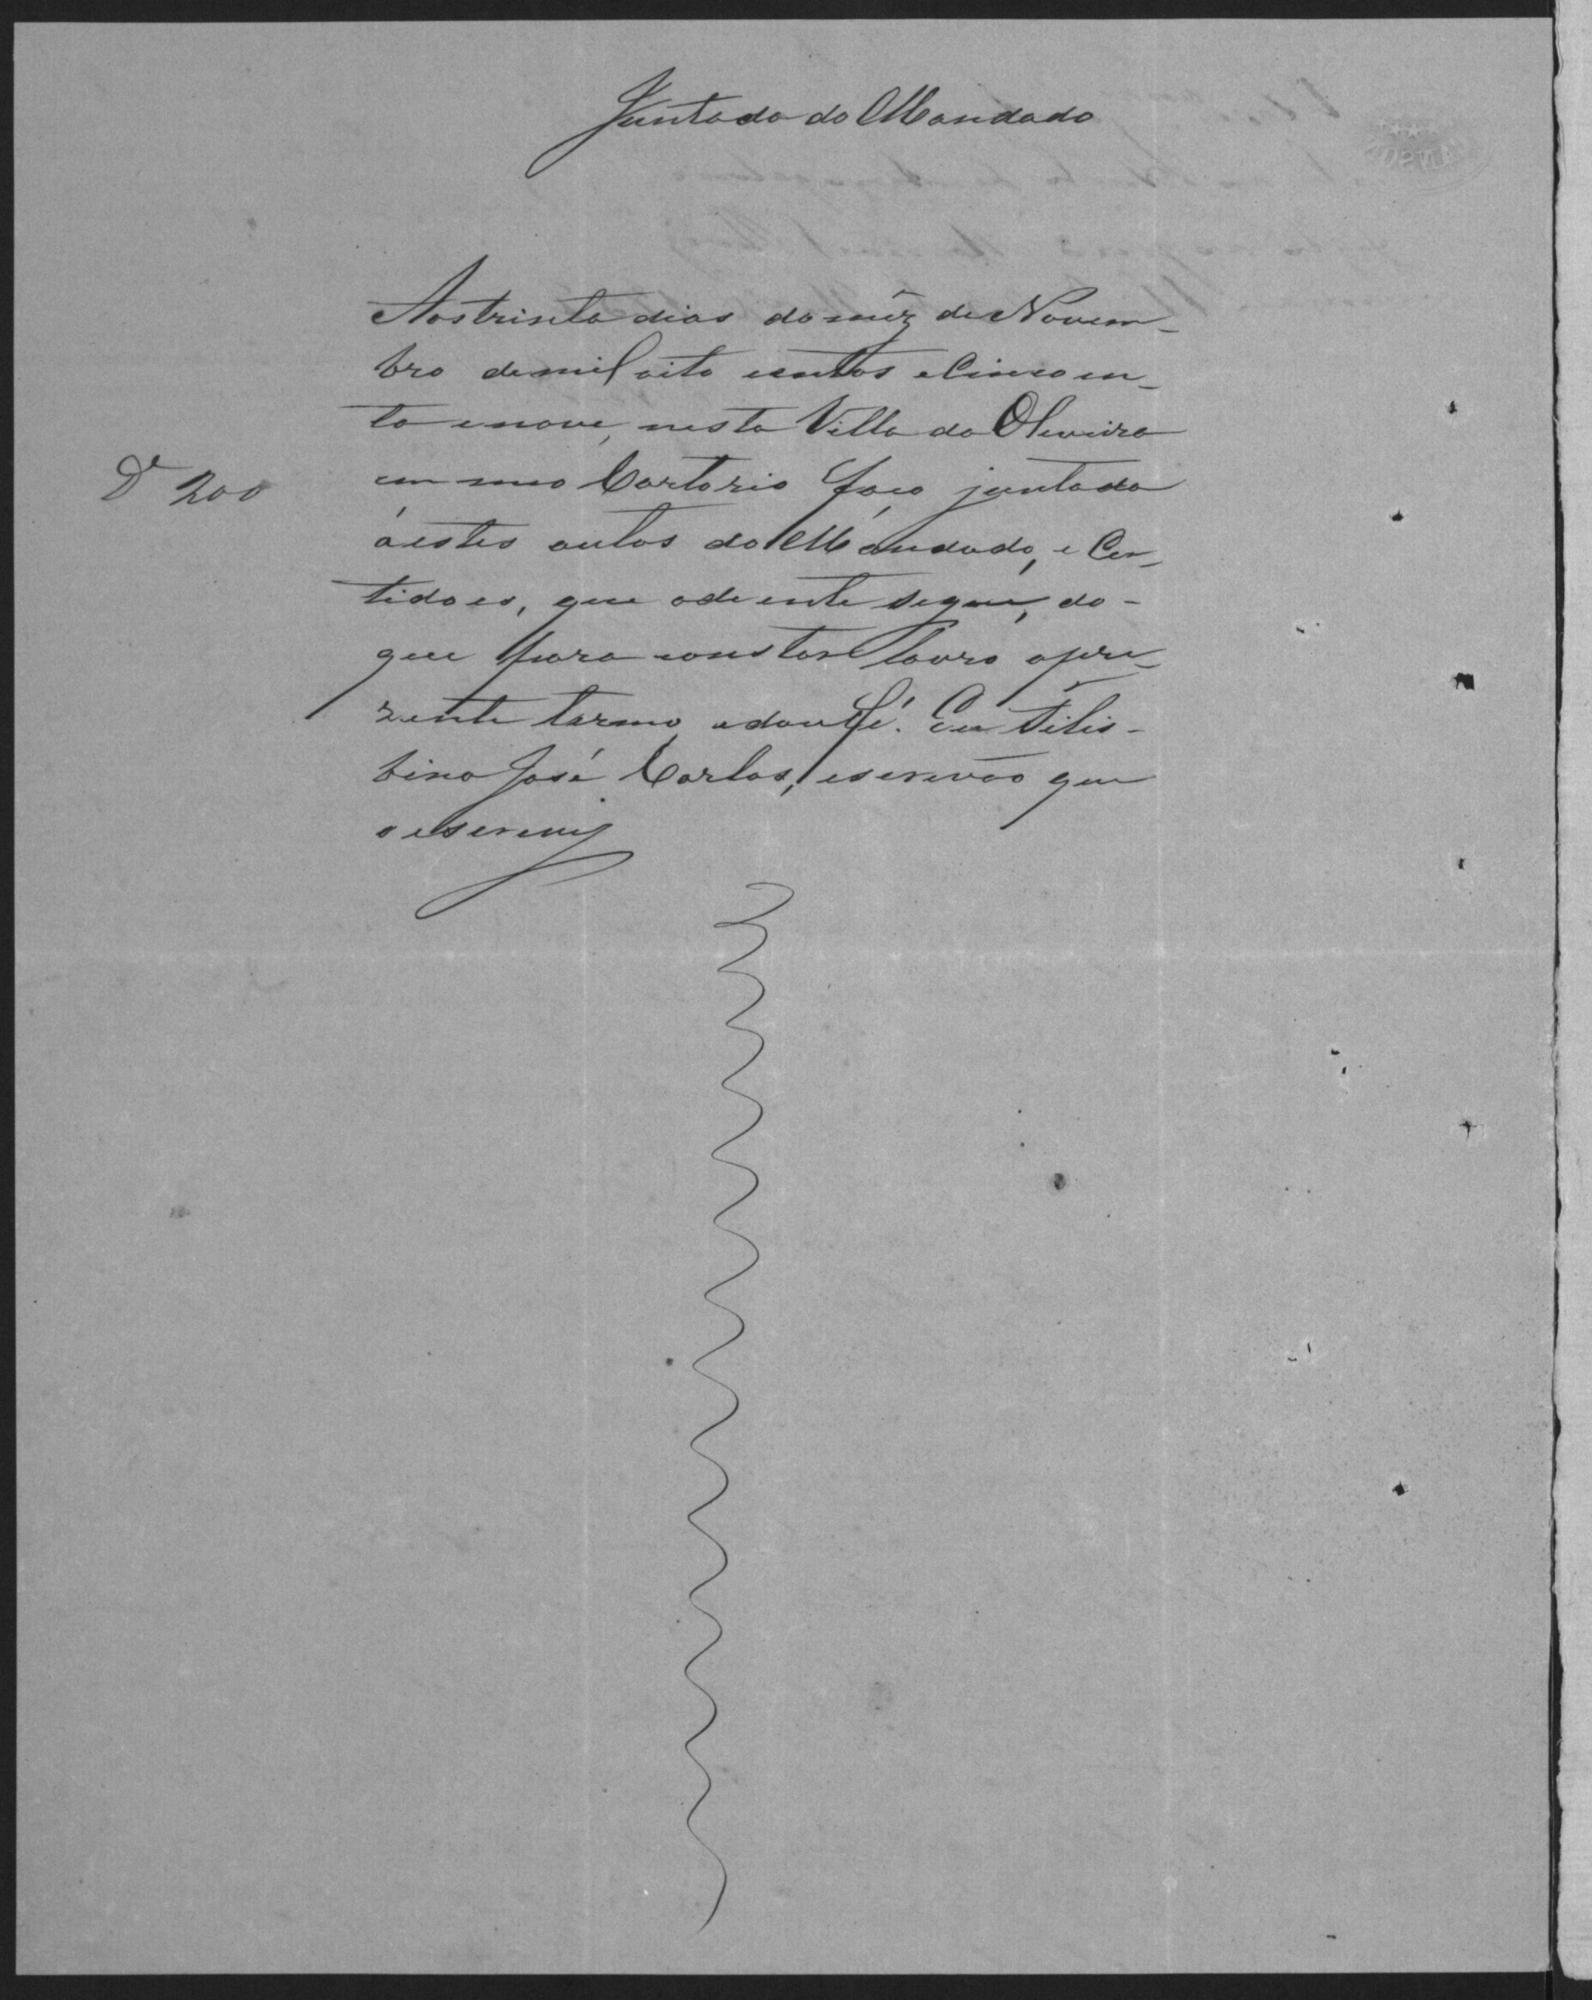 Juntada do Mandado
Aos trinta dias do mêz de Novem-
bro de mil oito centos e cincoen-
ta e nove, nesta Villa da Oliveira
D. 200
em meo Cartorio faço juntada
á estes autos do Mandado, e Cer-
tidoes, que adiente segue, do-
que para constar lavro o pre-
zente termo, e dou fé. Eu Felis-
bino José Carlos, escrivão que
o escrevy